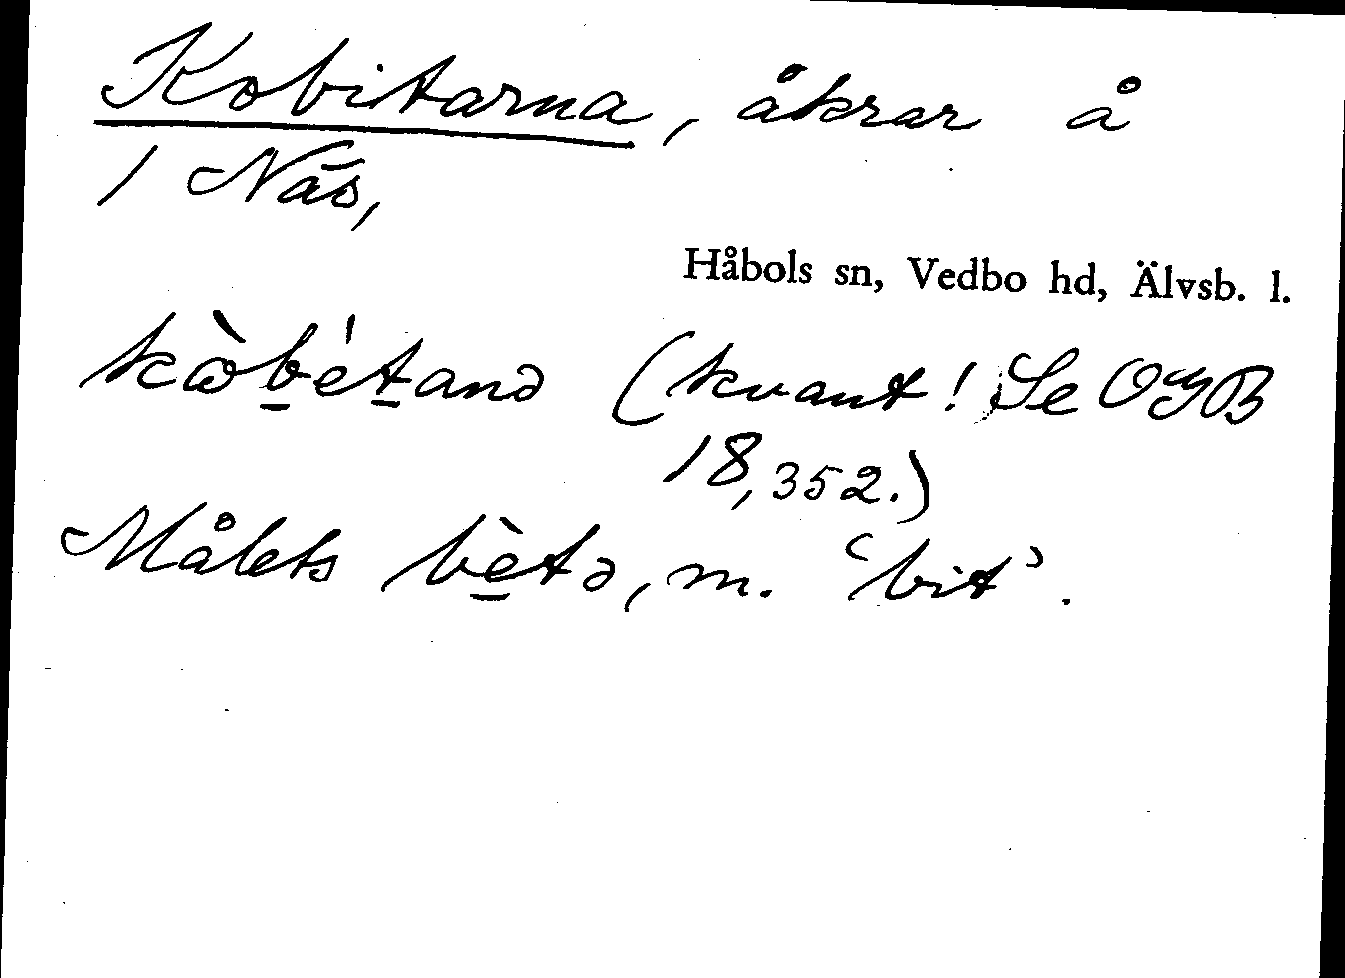 Kobitarna, åkrar å
1 Näs,
Håbols sn, Vedbo hd, Älvsb. l.
kὼb̲ét̲anə (kvant! Se OGB
18,352.)
Målets bè̲tə, m. ‘bit’.